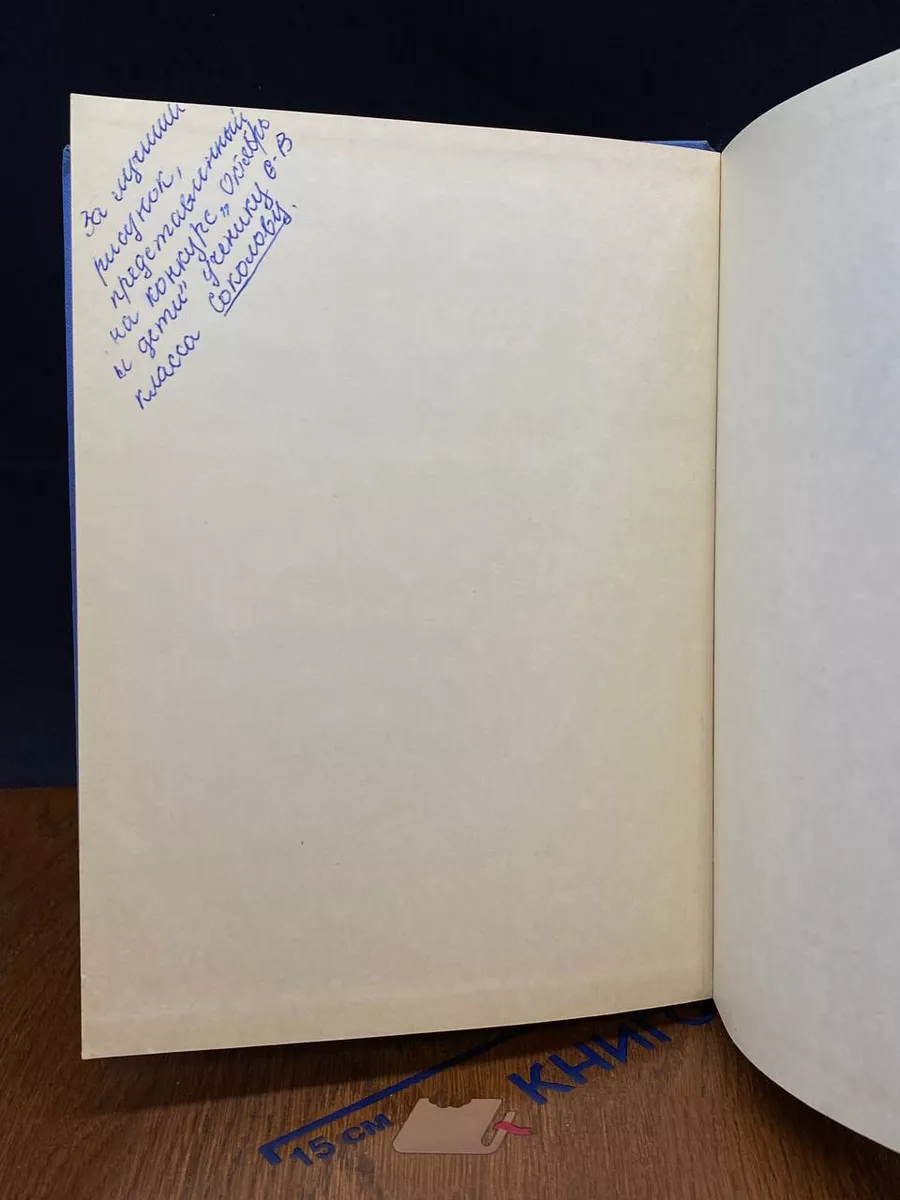 За лучший
рисунок,
представленный
на конкурс „Октябрь
и дети" ученику 6-В
класса Соколову.
КНИГО
15 см